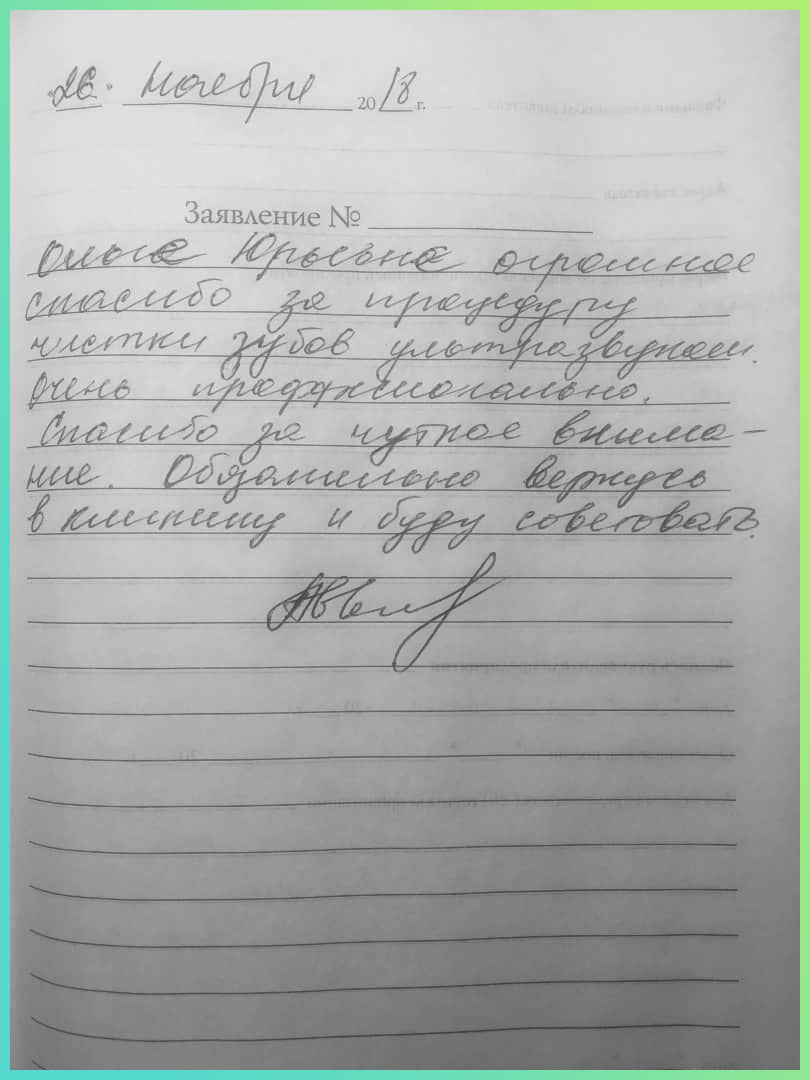 «26» Ноября 2018 г.
Заявление № 
Ольга Юрьевна огромное
спасибо за процедуру
чистки зубов ультразвуком.
Очень профессионально.
Спасибо за чуткое внима-
ние. Обязательно вернусь
в клинику и буду советовать.